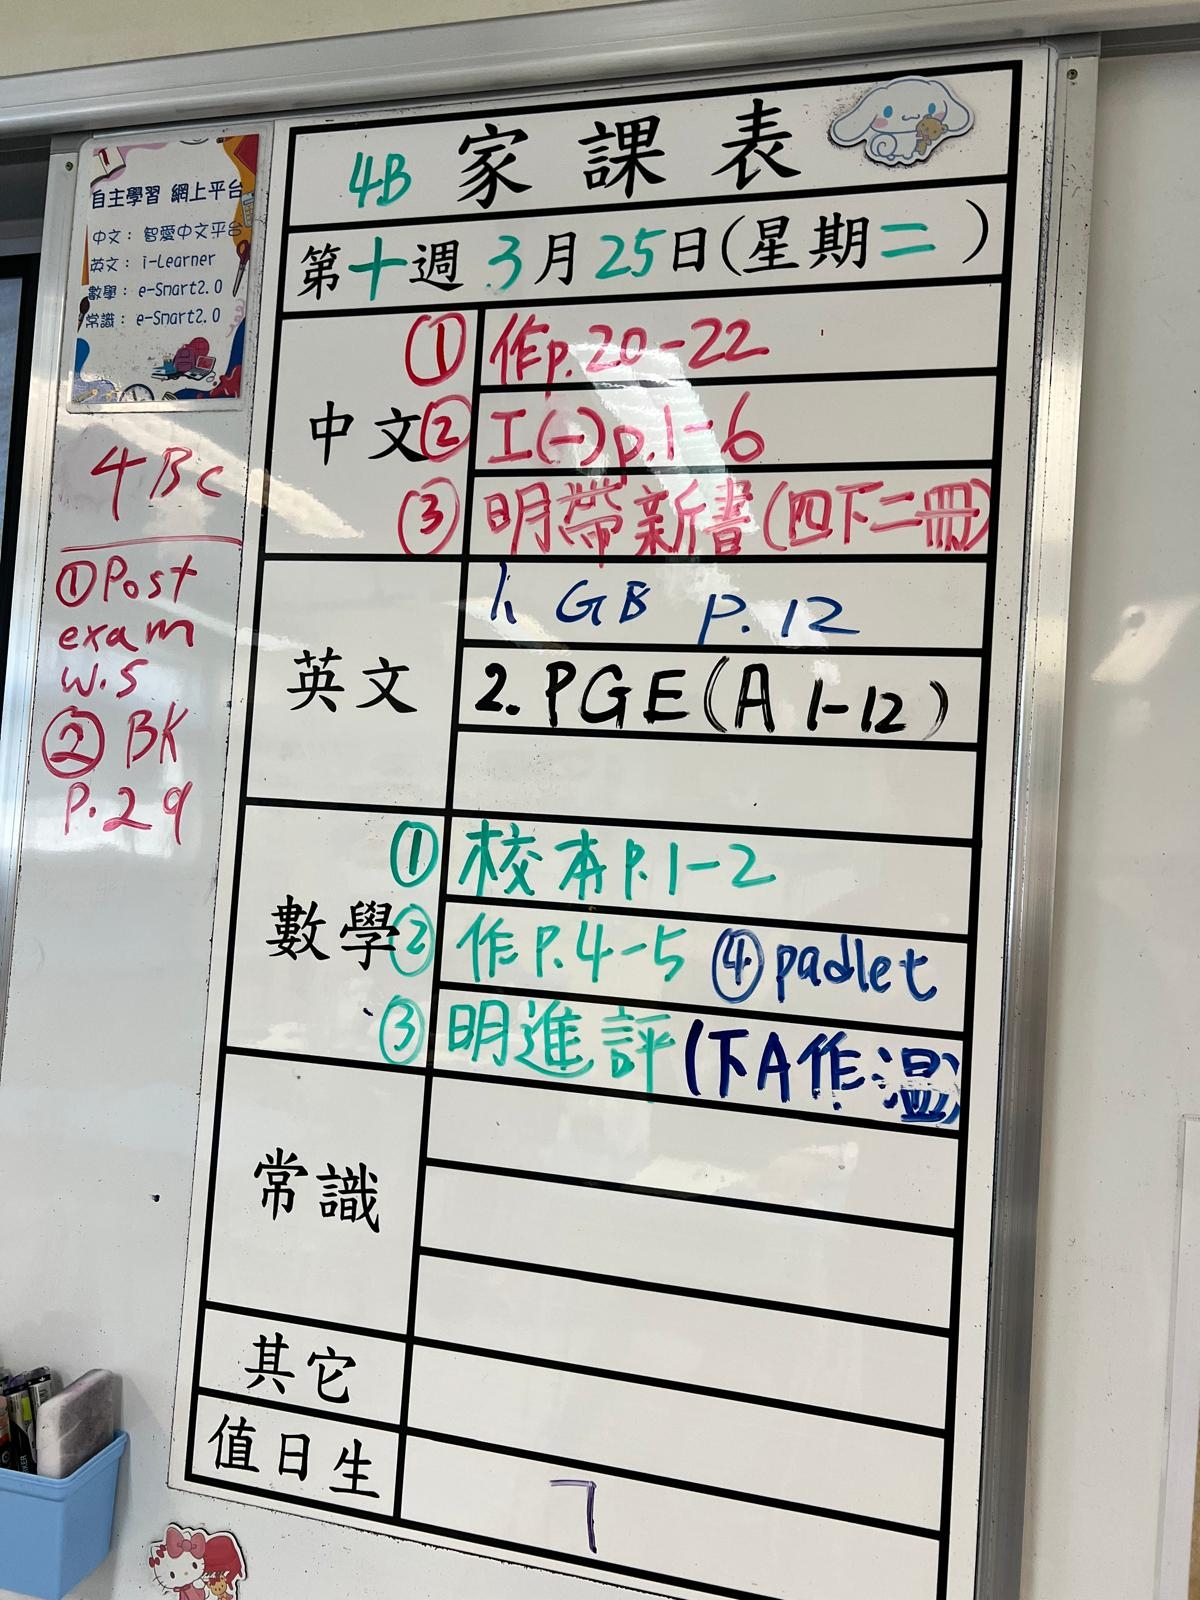 自主學習 網上平台
中文： 智愛中文平台
英文： i-Learner
數學： e-Smart2.0
常識： e-Smart2.0
4Bc
①Post
exam
w.s
② BK
P.29
4B 家課表
第十週 3月25日(星期二)
中文
① 作p.20-22
② 工(一)p.1-6
③ 明帶新書(四下二冊)
英文
1. GB p.12
2. PGE(A 1-12)
數學
① 校本P.1-2
② 作P.4-5 ④padlet
③ 明進評(下A作溫)
常識
其它
值日生
7